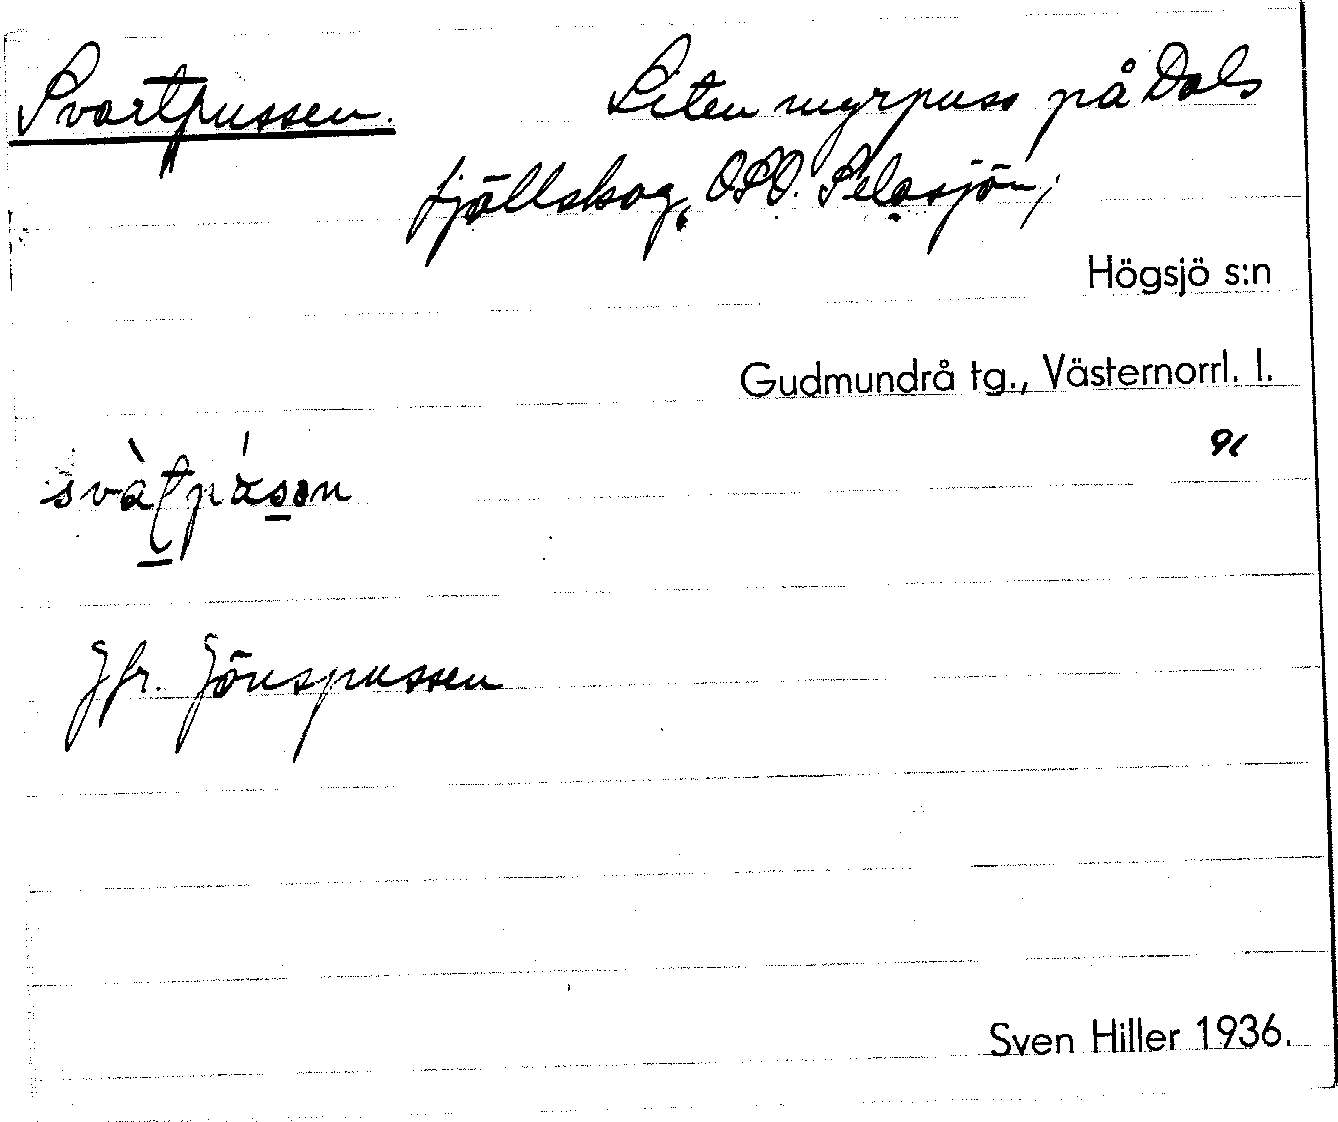 Svartpussen. Liten myrpuss på Dals
fjällskog, OSO. Selasjön;
Högsjö s:n
Gudmundrå tg., Västernorrl. l.
91
Jfr. Jönspussen
Sven Hiller 1936.